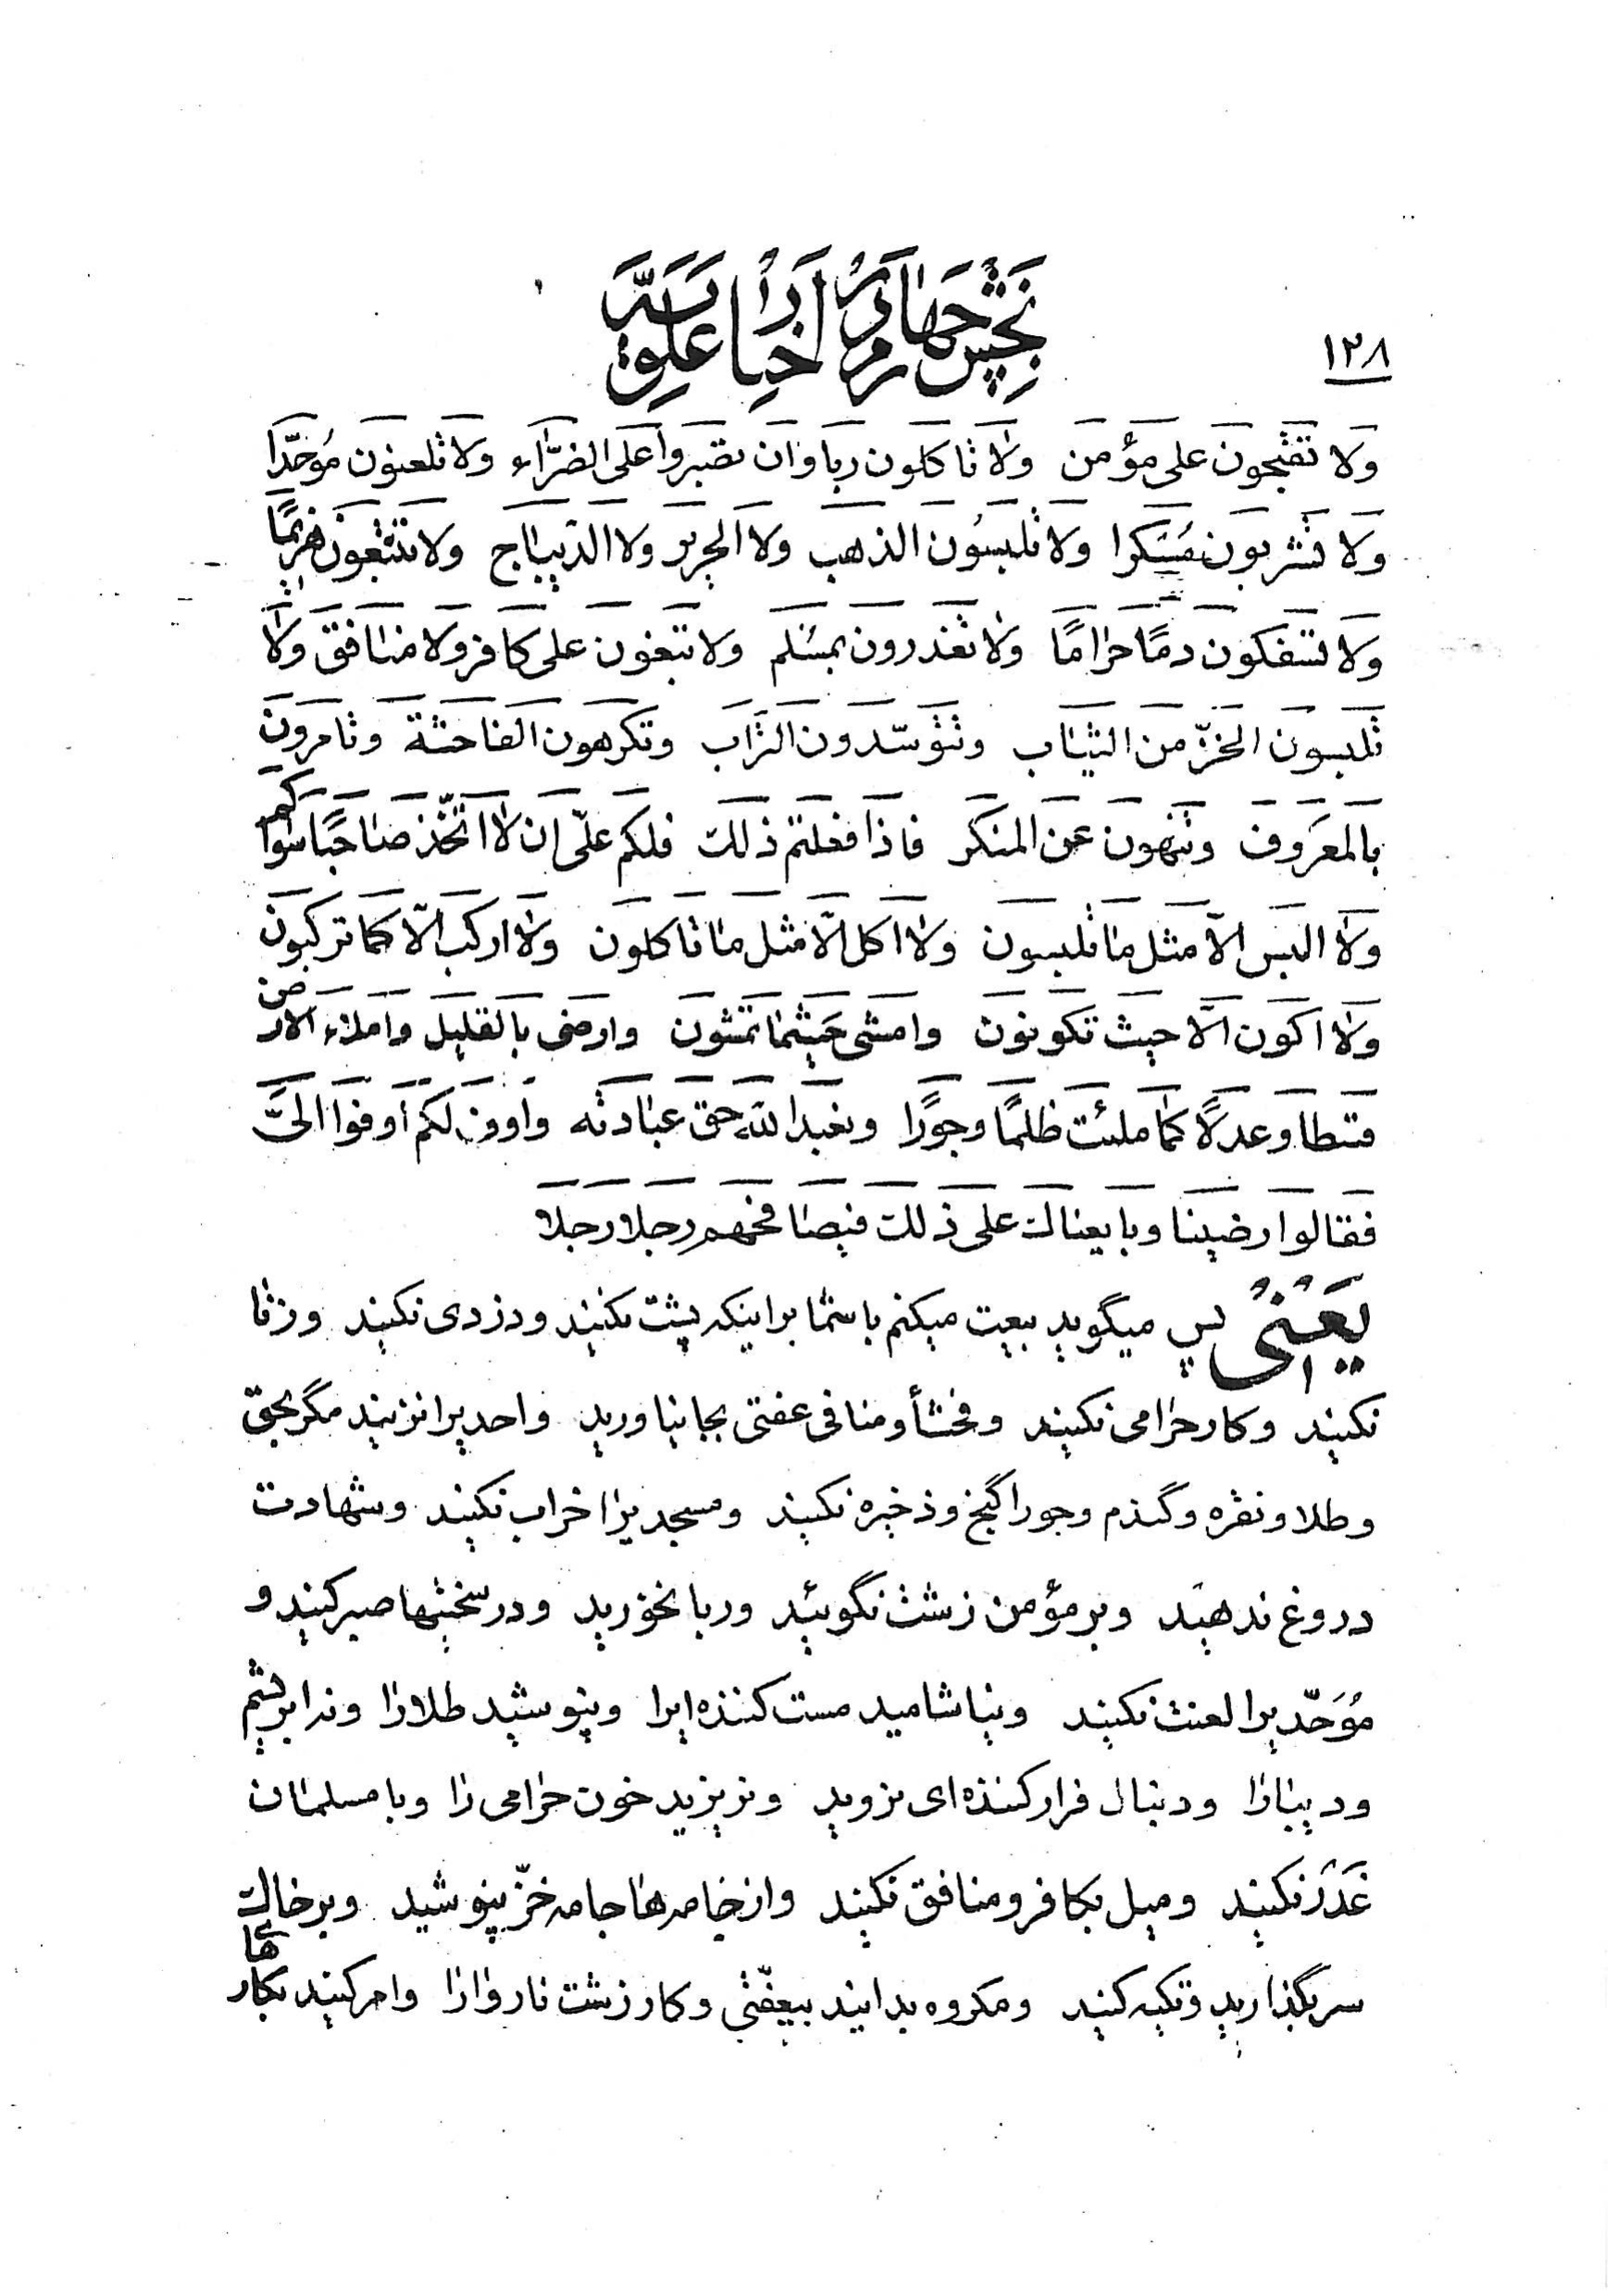 ۱۲۸
بخش چهارم در اخبار علویه
ولا تقبحون علی مؤمن ولا تأکلون ربا وان تصبروا علی الضراء ولا تلعنون موحّدا
ولا تشربون مسکرا ولا تلبسون الذهب ولا الحریر ولا الدیباج ولا تتبعون هزیما
ولا تسفکون دمًا حرامًا ولا تغدرون بمسلم ولا تبغون علی کافر ولا منافق ولا
تلبسون الخزّ من الثیاب وتتوسّدون التراب وتکرهون الفاحشة وتامرون
بالمعروف وتنهون عن المنکر فاذا فعلتم ذلک فلکم علیّ ان لا اتّخذ صاحبًا سواکم
ولا البس الّا مثل ما تلبسون ولا اکل الّا مثل ما تاکلون ولا ارکب الّا کما ترکبون
ولا اکون الّا حیث تکونون وامشی حیثما تمشون وارضی بالقلیل واملاء الارض
قسطا وعدلًا کما ملئت ظلمًا وجورًا ونعبد الله حق عبادته واوف لکم اوفوا الیّ
فقالوا رضینا وبایعناک علی ذلک فیصافحهم رجلا رجلا
یعنی پس میگوید بیعت میکنم باشما براینکه پشت نکنید ودزدی نکنید وزنا
نکنید وکار حرامی نکنید وفحشأ ومنافی عفتی بجا نیاورید واحدیرا نزنید مگر بحق
وطلا ونقره وگندم وجو را گنج وذخیره نکنید ومسجدیرا خراب نکنید وشهادت
دروغ ندهید وبر مؤمن زشت نگوئید وربا نخورید ودر سختیها صبر کنید و
مُوَحّدیرا لعنت نکنید ونیاشامید مست کننده ایرا ونپوشید طلارا ونه ابریشم
ودیبارا ودنبال فرار کننده ای نروید ونریزید خون حرامی را وبا مسلمان
غدر نکنید ومیل بکافر ومنافق نکنید واز جامه ها جامه خزّ نپوشید وبر خاک
سر بگذارید وتکیه کنید ومکروه بدانید بیعفّتی وکار زشت ناروارا وامر کنید بکارهای